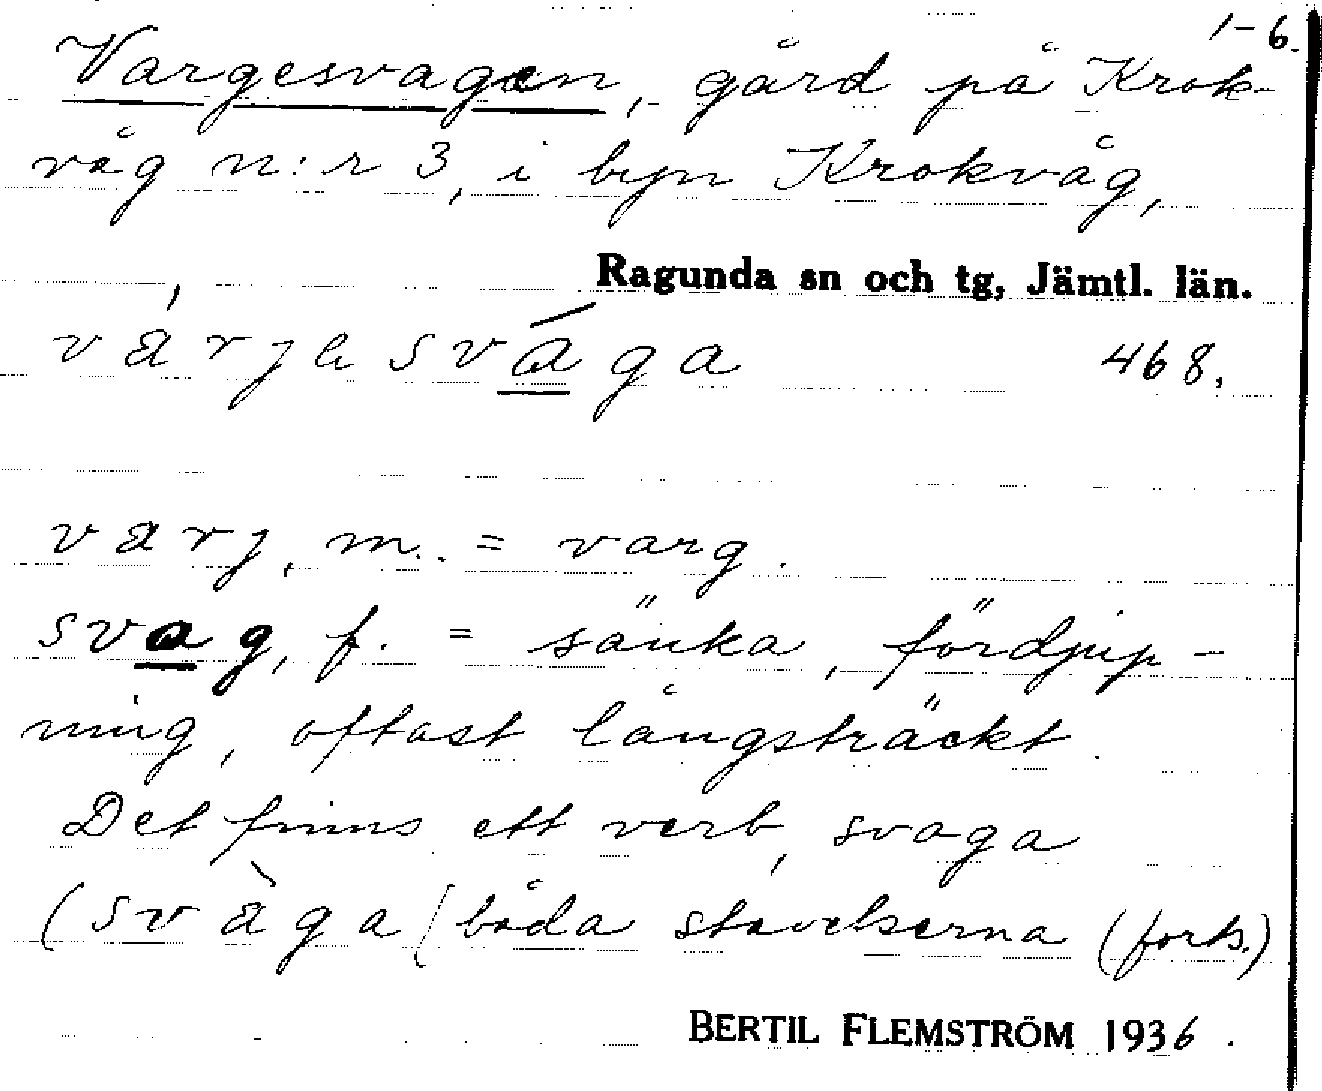 1-6.
Vargesvagen, gård på Krok-
våg n:r 3, i byn Krokvåg,
Ragunda sn och tg, Jämtl. län.
várjesvága 468,
varj, m. = varg.
svag, f. = sänka, fördjup-
ning, oftast långsträckt.
Det finns ett verb, svaga
(svàga/båda stavelserna (forts.)
BERTIL FLEMSTRÖM 1936.